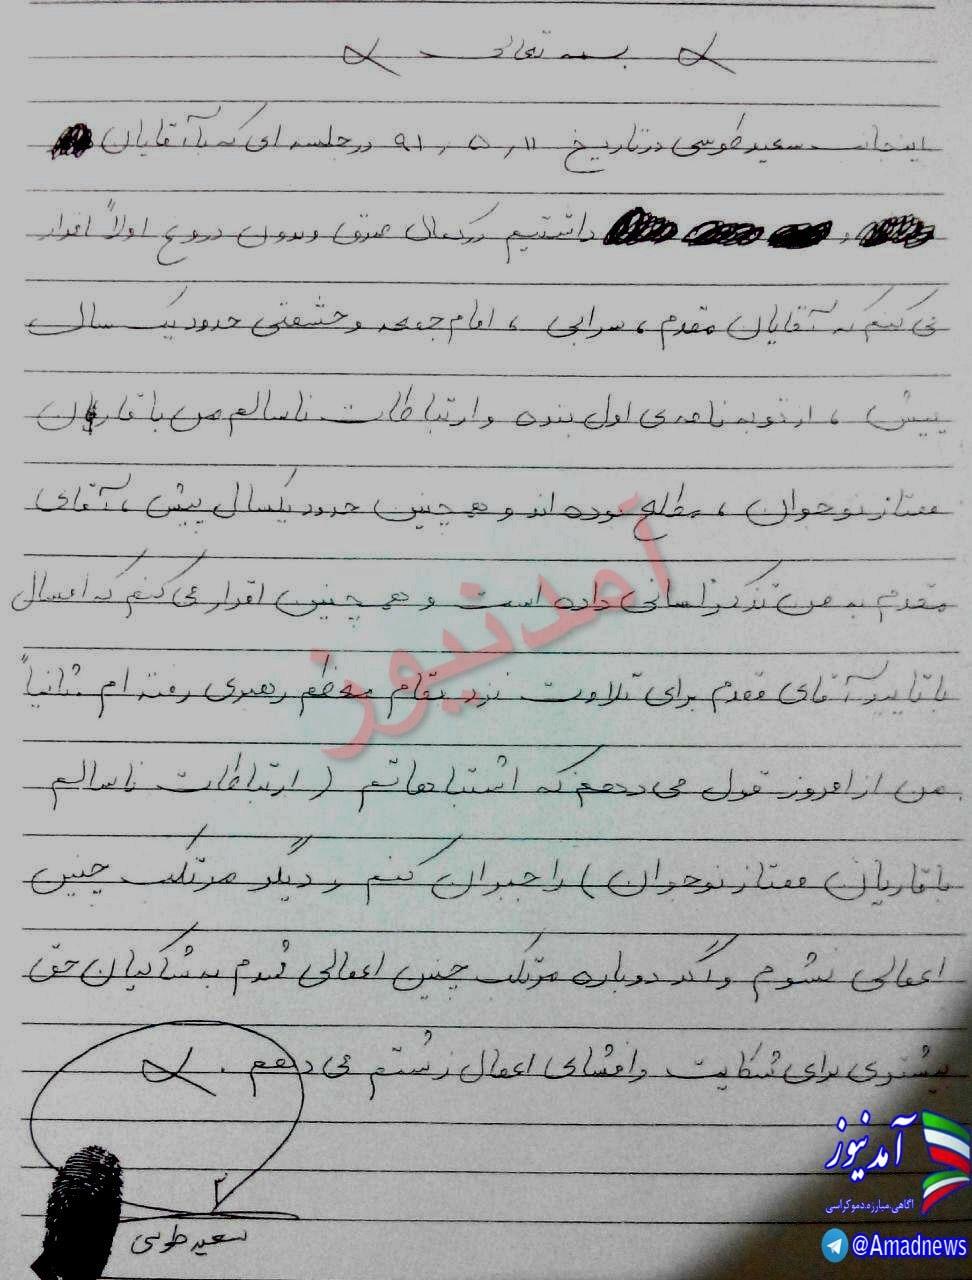 بسمه تعالی
اینجانب سعید طوسی در تاریخ ۹۱,۵,۱۱ در جلسه ای که با آقایان
و داشتیم در کمال صدق وبدون دروغ اولاً اقرار
می کنم که آقایان مقدم ، سرابی ، امام جمعه و حشمتی حدود یک سال
پیش ، از توبه نامه ی اول بنده و ارتباطات ناسالم من با قاریان
ممتاز نوجوان ، مطلع بوده اند و همچنین حدود یکسال پیش ، آقای
مقدم به من تذکر لسانی داده است و همچنین اقرار می کنم که امسال
با تایید آقای مقدم برای تلاوت نزد مقام معظم رهبری رفته ام . ثانیاً
من از امروز قول می دهم که اشتباهاتم ( ارتباطات ناسالم
با قاریان ممتاز نوجوان ) را جبران کنم و دیگر مرتکب چنین
اعمالی نشوم و اگر دوباره مرتکب چنین اعمالی شدم به شاکیان حق
بیشتری برای شکایت و افشای اعمال زشتم می دهم .
سعید طوسی
آمدنیوز
آمدنیوز
آگاهی.مبارزه.دموکراسی
@Amadnews